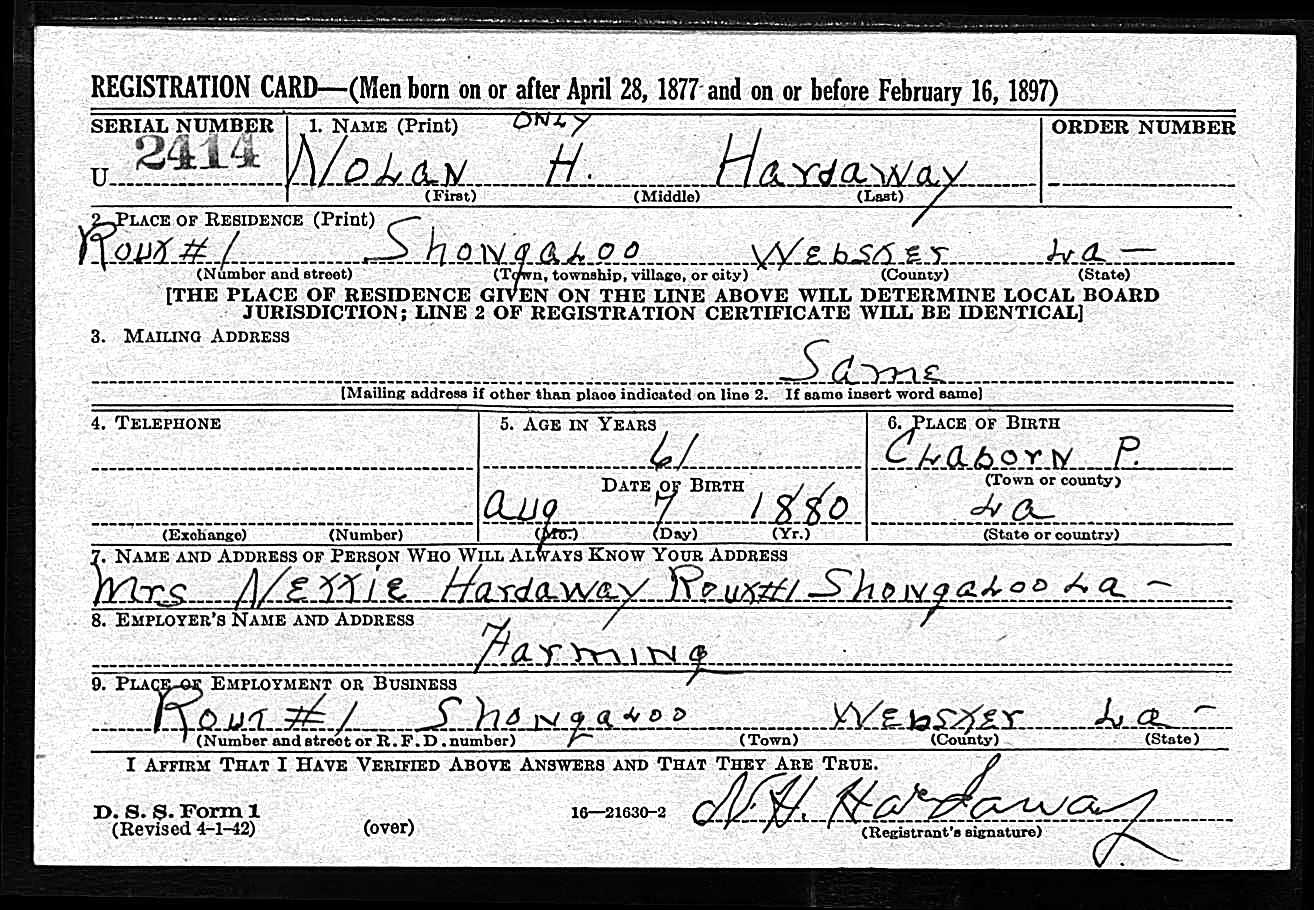 REGISTRATION CARD—(Men born on or after April 28, 1877 and on or before February 16, 1897)
SERIAL NUMBER 1. NAME (Print) ONLY ORDER NUMBER
U 2414 Nolan H. Hardaway
(First) (Middle) (Last)
2. PLACE OF RESIDENCE (Print)
Rout #1 Shongaloo Webster La —
(Number and street) (Town, township, village, or city) (County) (State)
[THE PLACE OF RESIDENCE GIVEN ON THE LINE ABOVE WILL DETERMINE LOCAL BOARD
JURISDICTION; LINE 2 OF REGISTRATION CERTIFICATE WILL BE IDENTICAL]
3. MAILING ADDRESS
Same
[Mailing address if other than place indicated on line 2. If same insert word same]
4. TELEPHONE 5. AGE IN YEARS 6. PLACE OF BIRTH
61 Claborn P.
DATE OF BIRTH (Town or county)
Aug 7 1880 La
(Exchange) (Number) (Mo.) (Day) (Yr.) (State or country)
7. NAME AND ADDRESS OF PERSON WHO WILL ALWAYS KNOW YOUR ADDRESS
Mrs Nettie Hardaway Rout #1 Shongaloo La —
8. EMPLOYER'S NAME AND ADDRESS
Farming
9. PLACE OF EMPLOYMENT OR BUSINESS
Rout #1 Shongaloo Webster La —
(Number and street or R. F. D. number) (Town) (County) (State)
I AFFIRM THAT I HAVE VERIFIED ABOVE ANSWERS AND THAT THEY ARE TRUE.
D. S. S. Form 1 16—21630-2 N. H. Hardaway
(Revised 4-1-42) (over) (Registrant's signature)